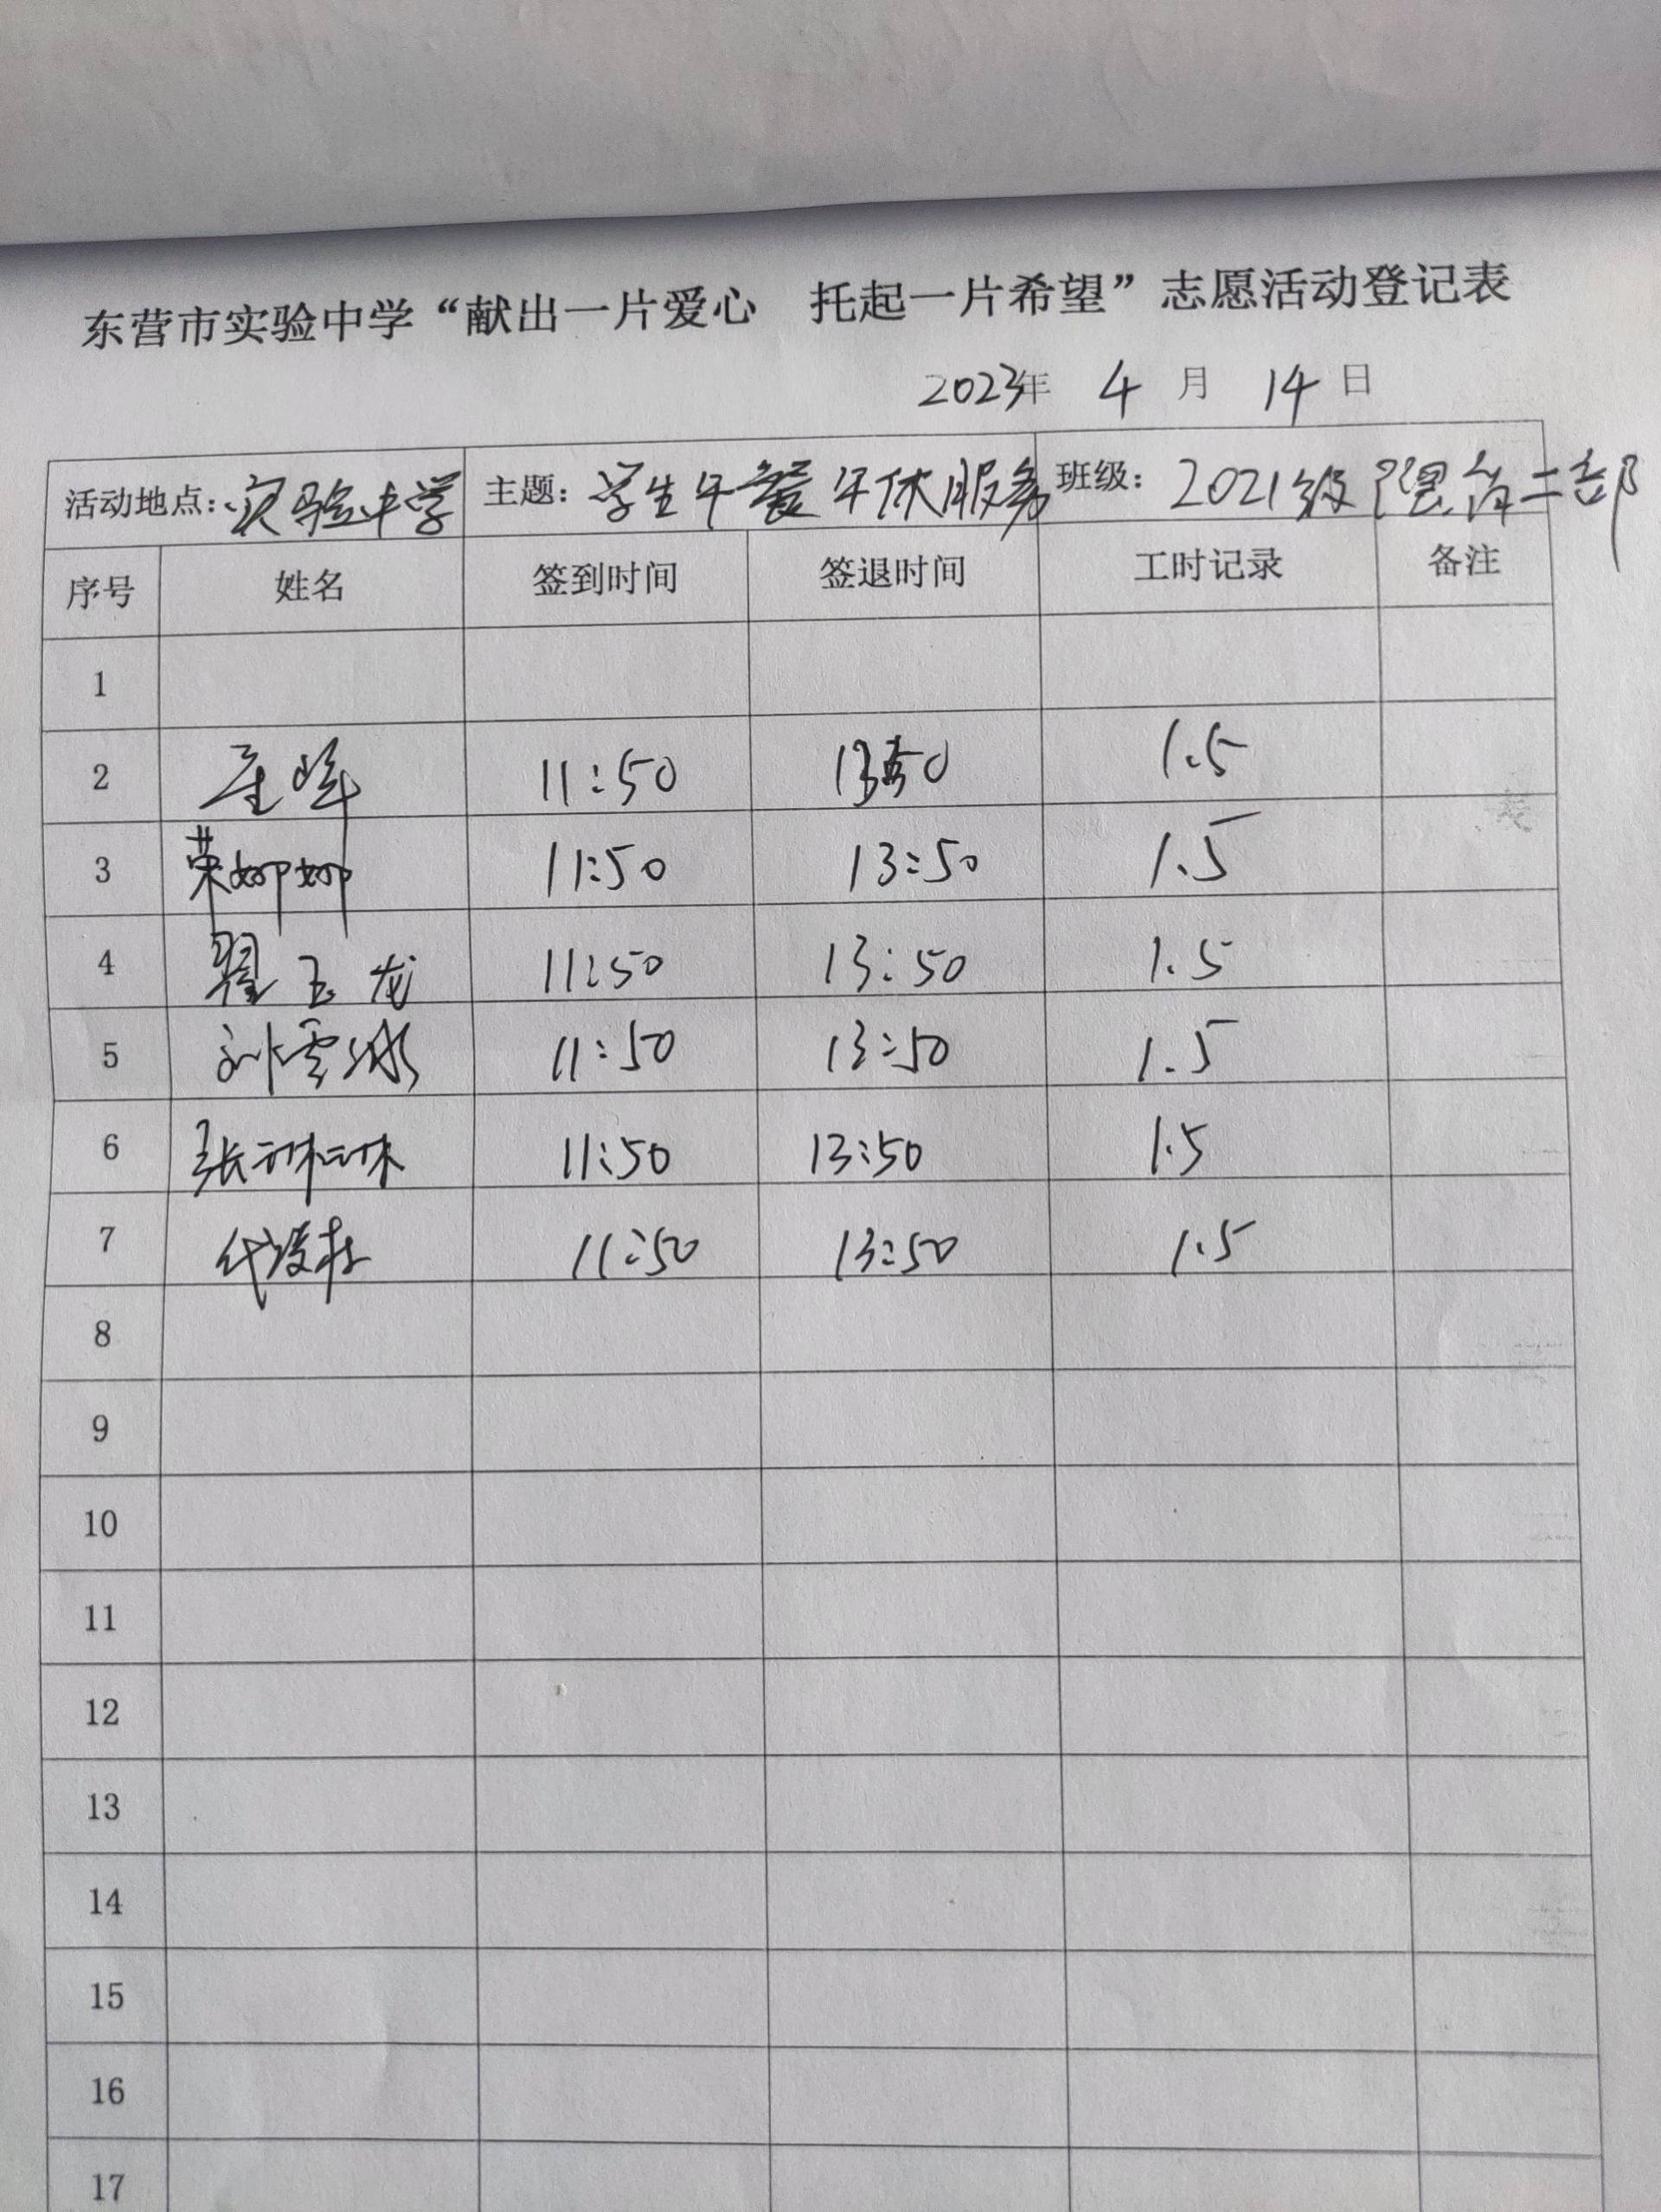 东营市实验中学“献出一片爱心 托起一片希望”志愿活动登记表
2023年 4 月 14 日
活动地点:实验中学 主题:学生午餐午休服务 班级: 2021级 二部
序号 姓名 签到时间 签退时间 工时记录 备注
1
2 11:50 13:50 1.5
3 荣娜娜 11:50 13:50 1.5
4 翟玉龙 11:50 13:50 1.5
5 刘雪冰 11:50 13:50 1.5
6 张琳琳 11:50 13:50 1.5
7 11:50 13:50 1.5
8
9
10
11
12
13
14
15
16
17